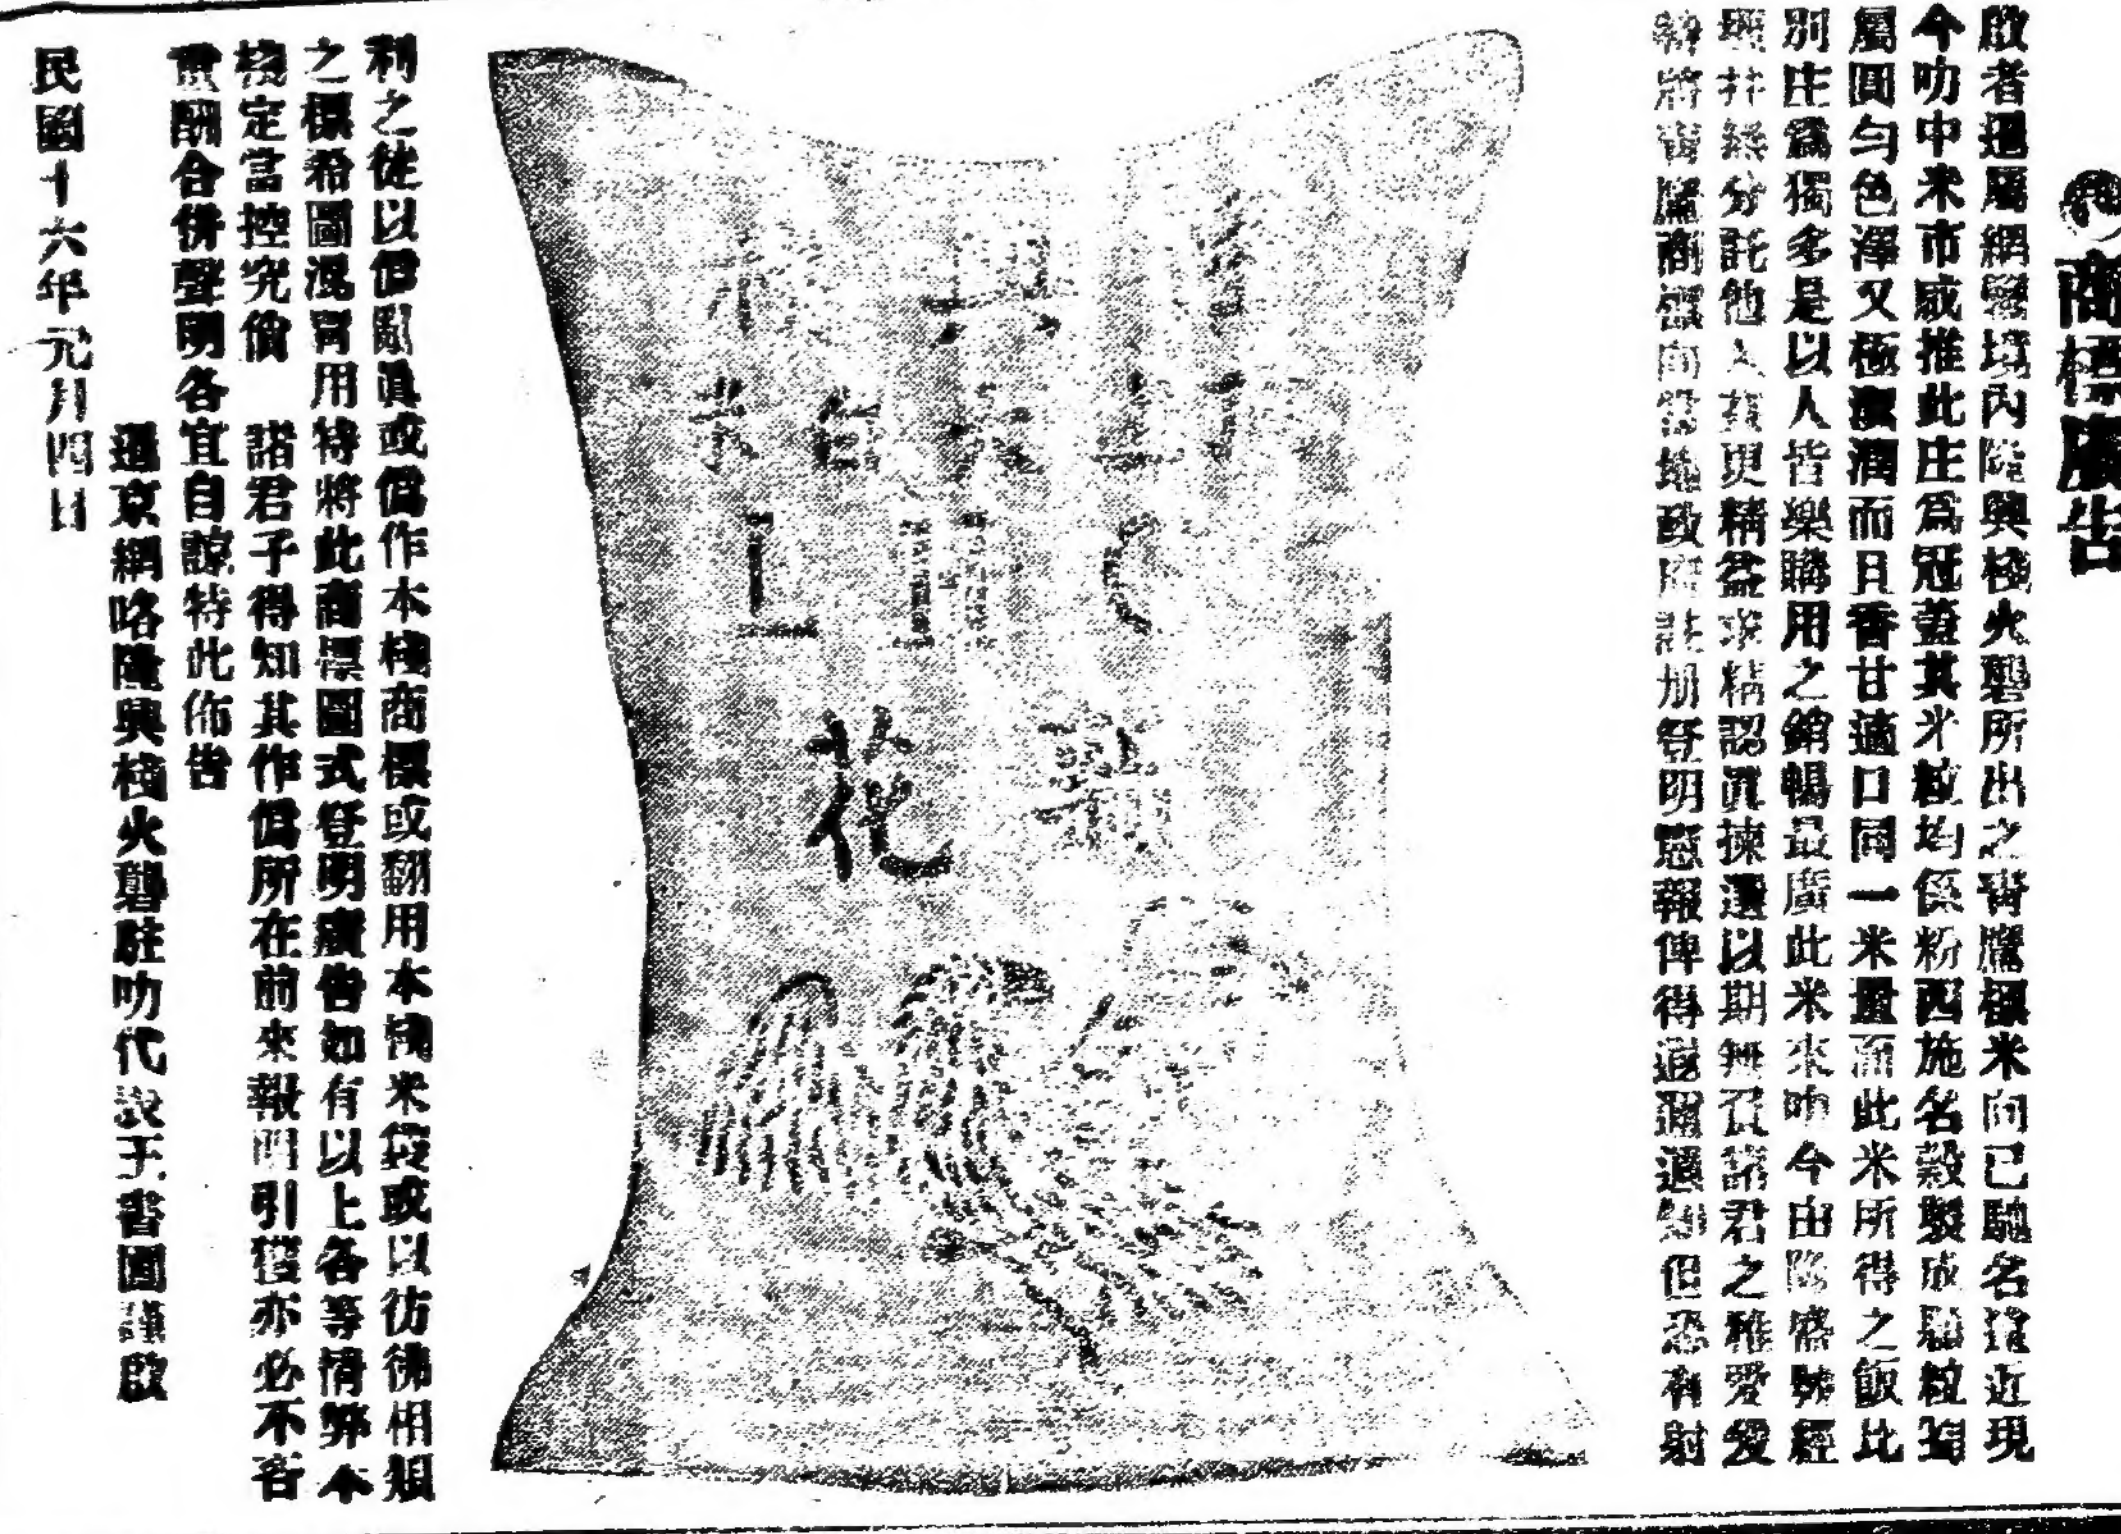 商標廣告
啟者暹屬網鑾境內隆興棧火礱所出之青鷹標米向已馳名遠近現
今叻中米市咸推此庄為冠蓋其米粒均係粉西施名穀製成顆粒均
屬圓勻色澤又極潔潤而且香甘適口同一米量而此米所得之飯比
別庄為獨多是以人皆樂購用之銷暢最廣此米來叻今由隆盛號經
理并無分託他人茲更精益求精認真揀選以期無負諸君之雅愛爰
特將青鷹商標向當地政府註册登明憲報俾得遐邇週知但恐有射
利之徒以偽亂真或偽作本棧商標或翻用本棧米袋或以彷彿相類
之標希圖混冒用特將此商標圖式登明廣告如有以上各等情弊本
棧定當控究倘　諸君子得知其作偽所在前來報明引獲亦必不吝
重酬合併聲明各宜自諒特此佈告
暹京網咯隆興棧火礱駐叻代表王書圃謹啟
民國十六年元月四日
花